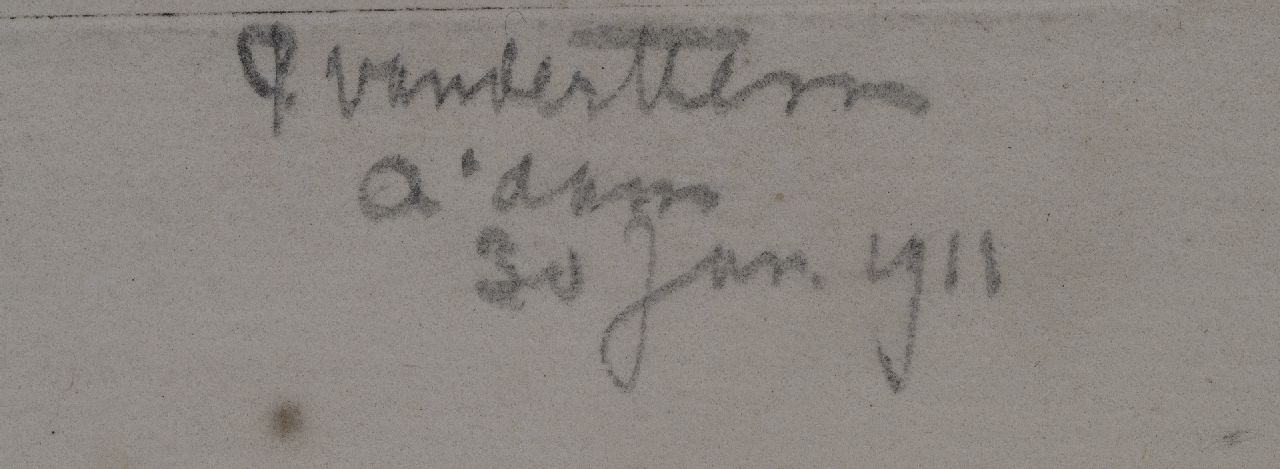 P. vanderHem
A'dam
30 Jan. 1911